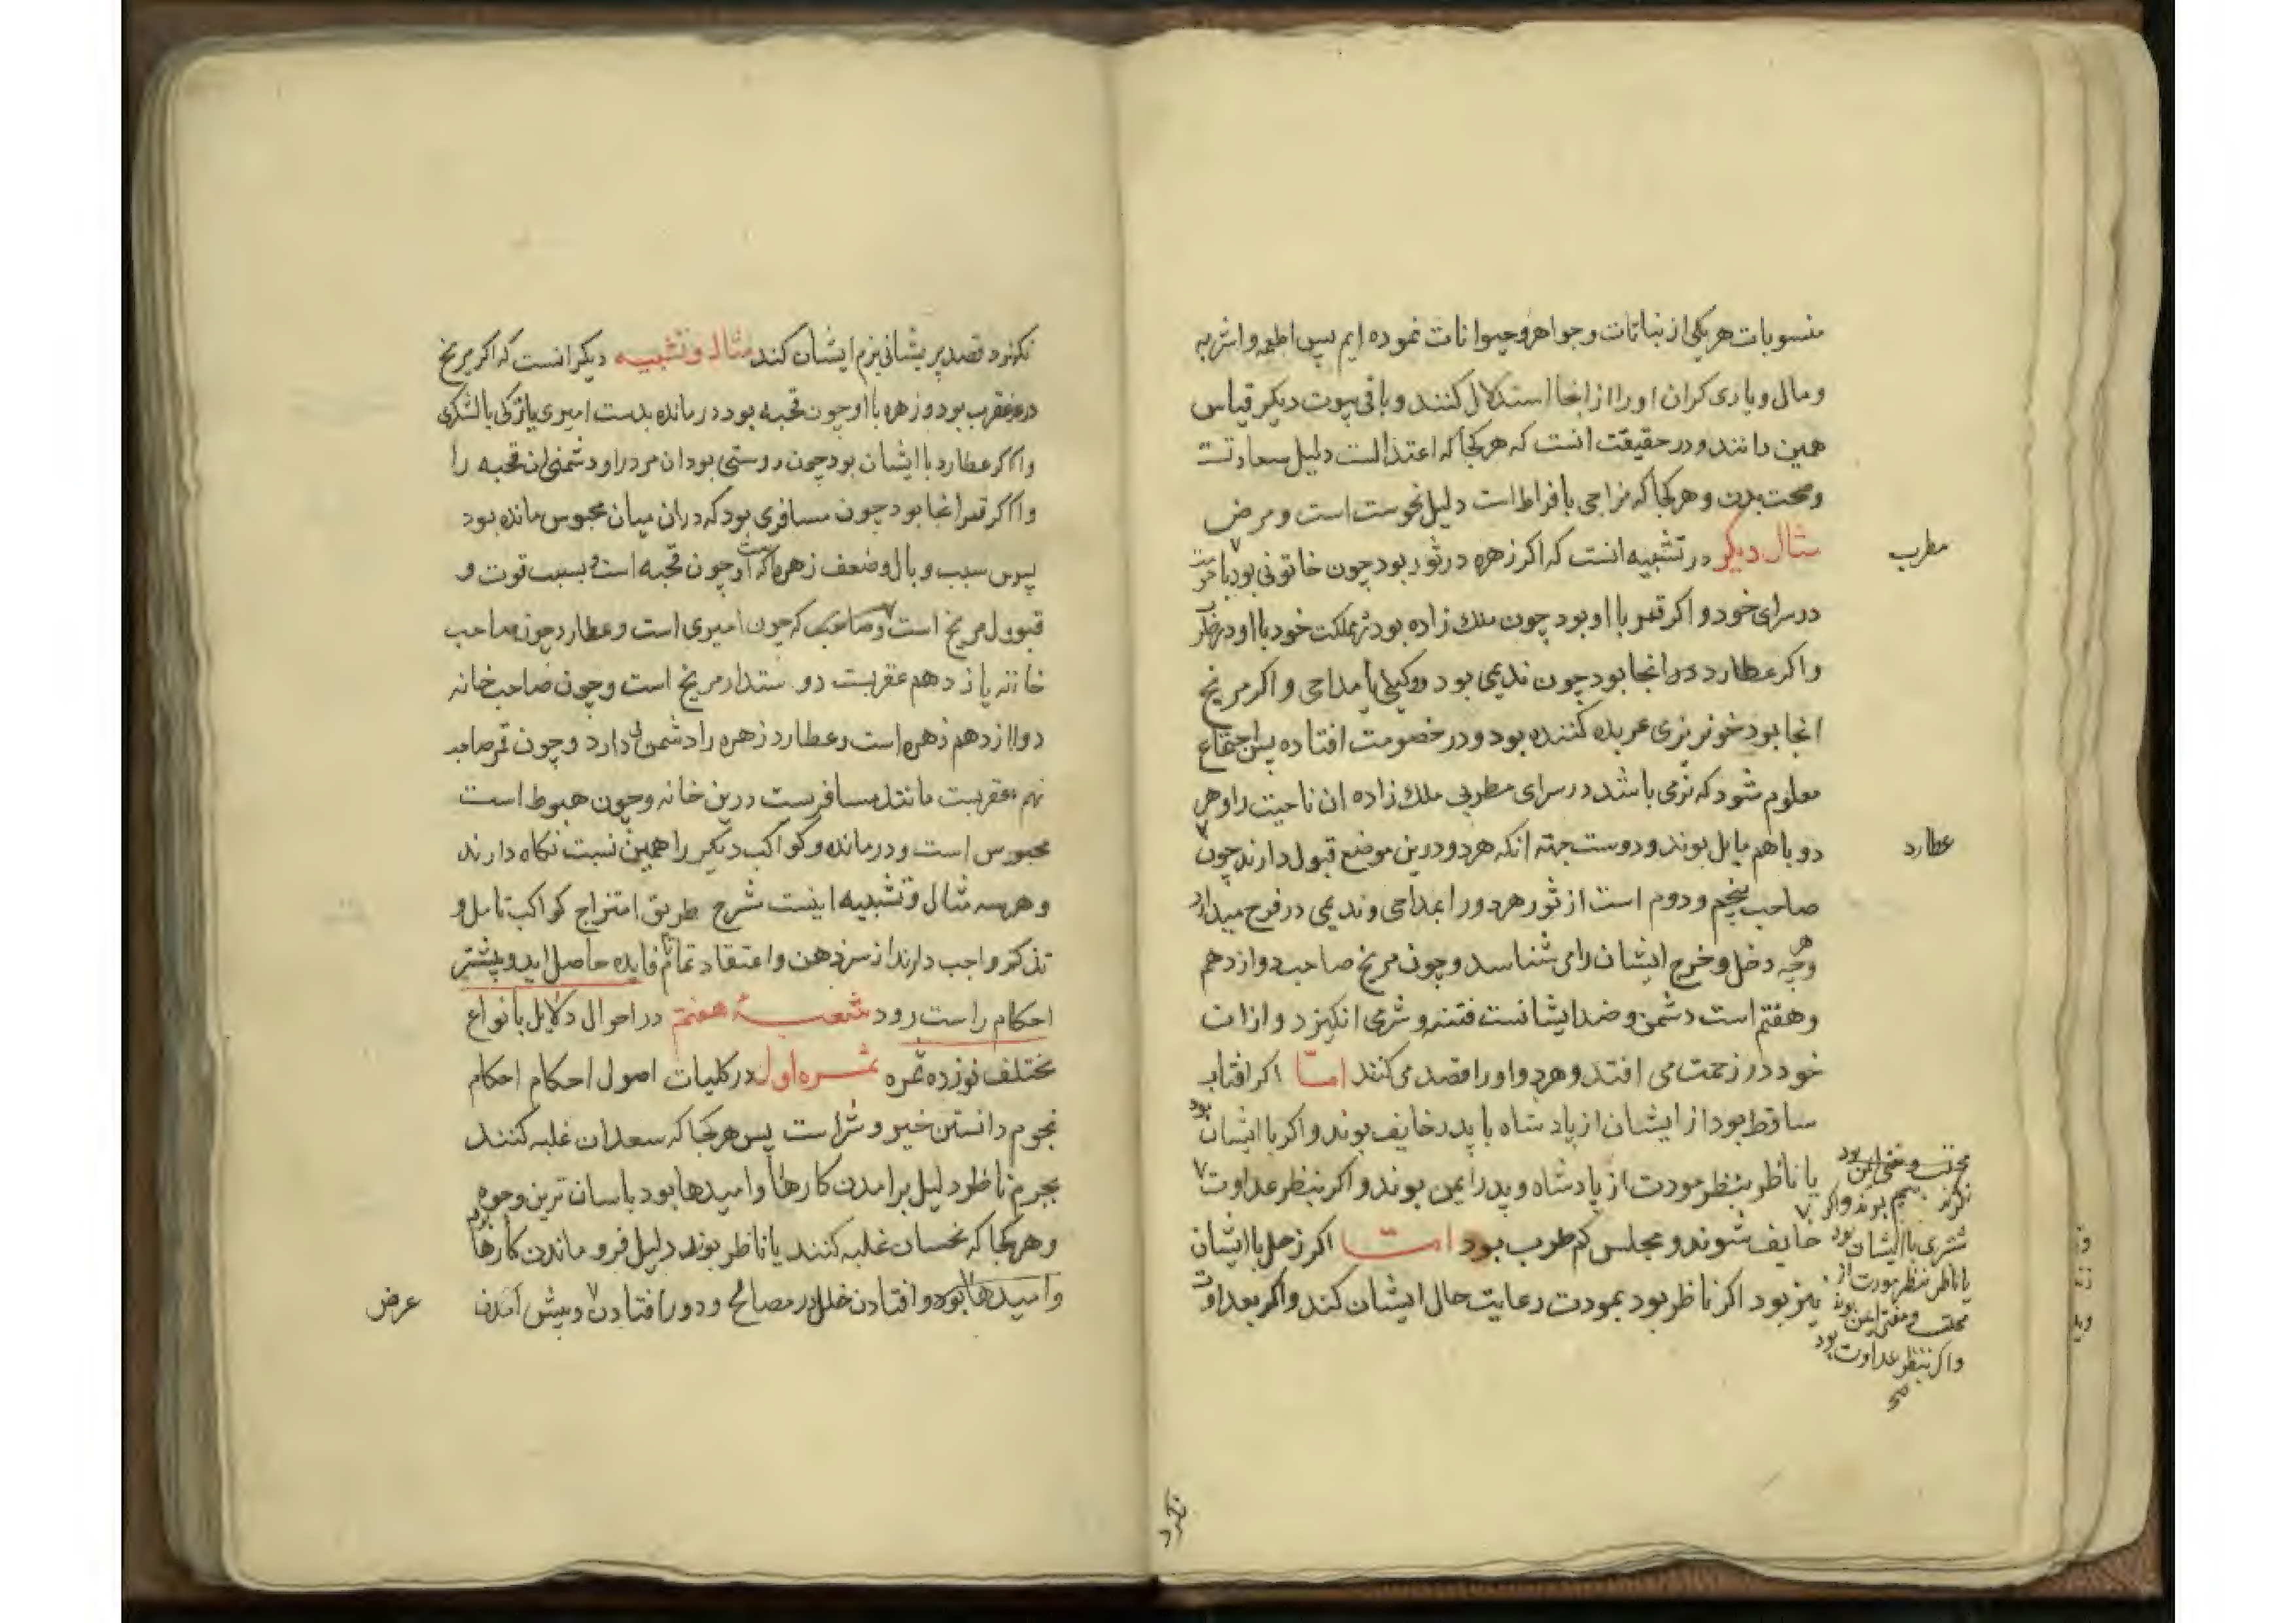 منسوبات هر یکی از نباتات و جواهر و حیوانات نموده ایم پس اطعمه و اشربه
و مال و یاری کران او را از انجا استدلال کنند و باقی بیوت دیکر قیاس
همین دانند و در حقیقت انست که هر کجا که اعتدالست دلیل سعادتست
و صحت بدن و هر کجا که مزاجی بافراط است دلیل نحوست است و مرض
مثال دیکر در تشبیه انست که اکر زهره در ثور بود چون خاتونی بود با
مطرب
در سرای خود و اکر قمر با او بود چون ملک زاده بود در مملکت خود با او در
و اکر عطارد در انجا بود چون ندیمی بود و وکیلی یا مداحی و اکر مریخ
انجا بود خونریزی عربده کننده بود و در خصومت افتاده پس اجتماع
معلوم شود که بزمی باشد در سرای مطربی ملک زاده ان ناحیت را و هر
دو با هم مایل بوند و دوست جهة انکه هر دو درین موضع قبول دارند چون
عطارد
صاحب پنجم و دوم است از ثور هر دو را بمداحی و ندیمی در فرح میدارد
و جه دخل و خرج ایشان را می شناسد و چون مریخ صاحب دوازدهم
و هفتم است دشمن و ضد ایشانست فتنه و شری انکیزد و از ان
خود در زحمت می افتد و هر دو او را قصد می کنند اما اکر افتاب
ساقط بود از ایشان از پادشاه یا پدر خایف بوند و اکر با ایشان بود
یا ناظر بنظر مودت از پادشاه و پدر ایمن بوند و اکر بنظر عداوت
خایف شوند و مجلس کم طرب بود اما اکر زحل با ایشان
نیز بود اکر ناظر بود بمودت رعایت حال ایشان کند و اکر بعداوت
بیم بوند و اکر
مشتری با ایشان بود
یا ناظر بنظر مودت از
محتسب و مفتی ایمن بوند
و اکر بنظر عداوت بود
نکرد
نکرد قصد پریشانی بزم ایشان کند مثال و تشبیه دیکر انست که اکر مریخ
در عقرب بود و زهره با او چون قحبه بود درمانده بدست امیری یا ترکی یا لشکری
و اکر عطارد با ایشان بود چون دوستی بود ان مرد را و دشمنی ان قحبه را
و اکر قمر انجا بود چون مسافری بود که در ان میان محبوس مانده بود
پس سبب وبال و ضعف زهره که او چون قحبه است و بسبب قوت و
قبول مریخ است و صاحب که چون امیری است و عطارد چون صاحب
خانه یازدهم عقربست دوستدار مریخ است و چون صاحب خانه
دوازدهم زهره است و عطارد زهره را دشمنی دارد و چون قمر صاحب
نهم عقربست مانند مسافریست درین خانه و چون هبوط است
محبوس است و درمانده و کواکب دیکر را همین نسبت نکاه دارند
و هر سه مثال و تشبیه اینست شرح طریق امتزاج کواکب تامل و
تذکر واجب دارند از سر ذهن و اعتقاد تمام تا فایده حاصل اید و بیشتر
احکام راست رود شعبهٔ هفتم در احوال دلایل بانواع
مختلف نوزده ثمره ثمره اول در کلیات اصول احکام احکام
نجوم دانستن خیر و شر است پس هر کجا که سعدان غلبه کنند
بجرم یا ناظر دلیل برامدن کارها و امیدها بود باسان ترین وجوه
و هر کجا که نحسان غلبه کنند یا ناظر بوند دلیل فرو ماندن کارها
و امیدها بود و افتادن خلل در مصالح و دور افتادن و پیش امدن
عرض